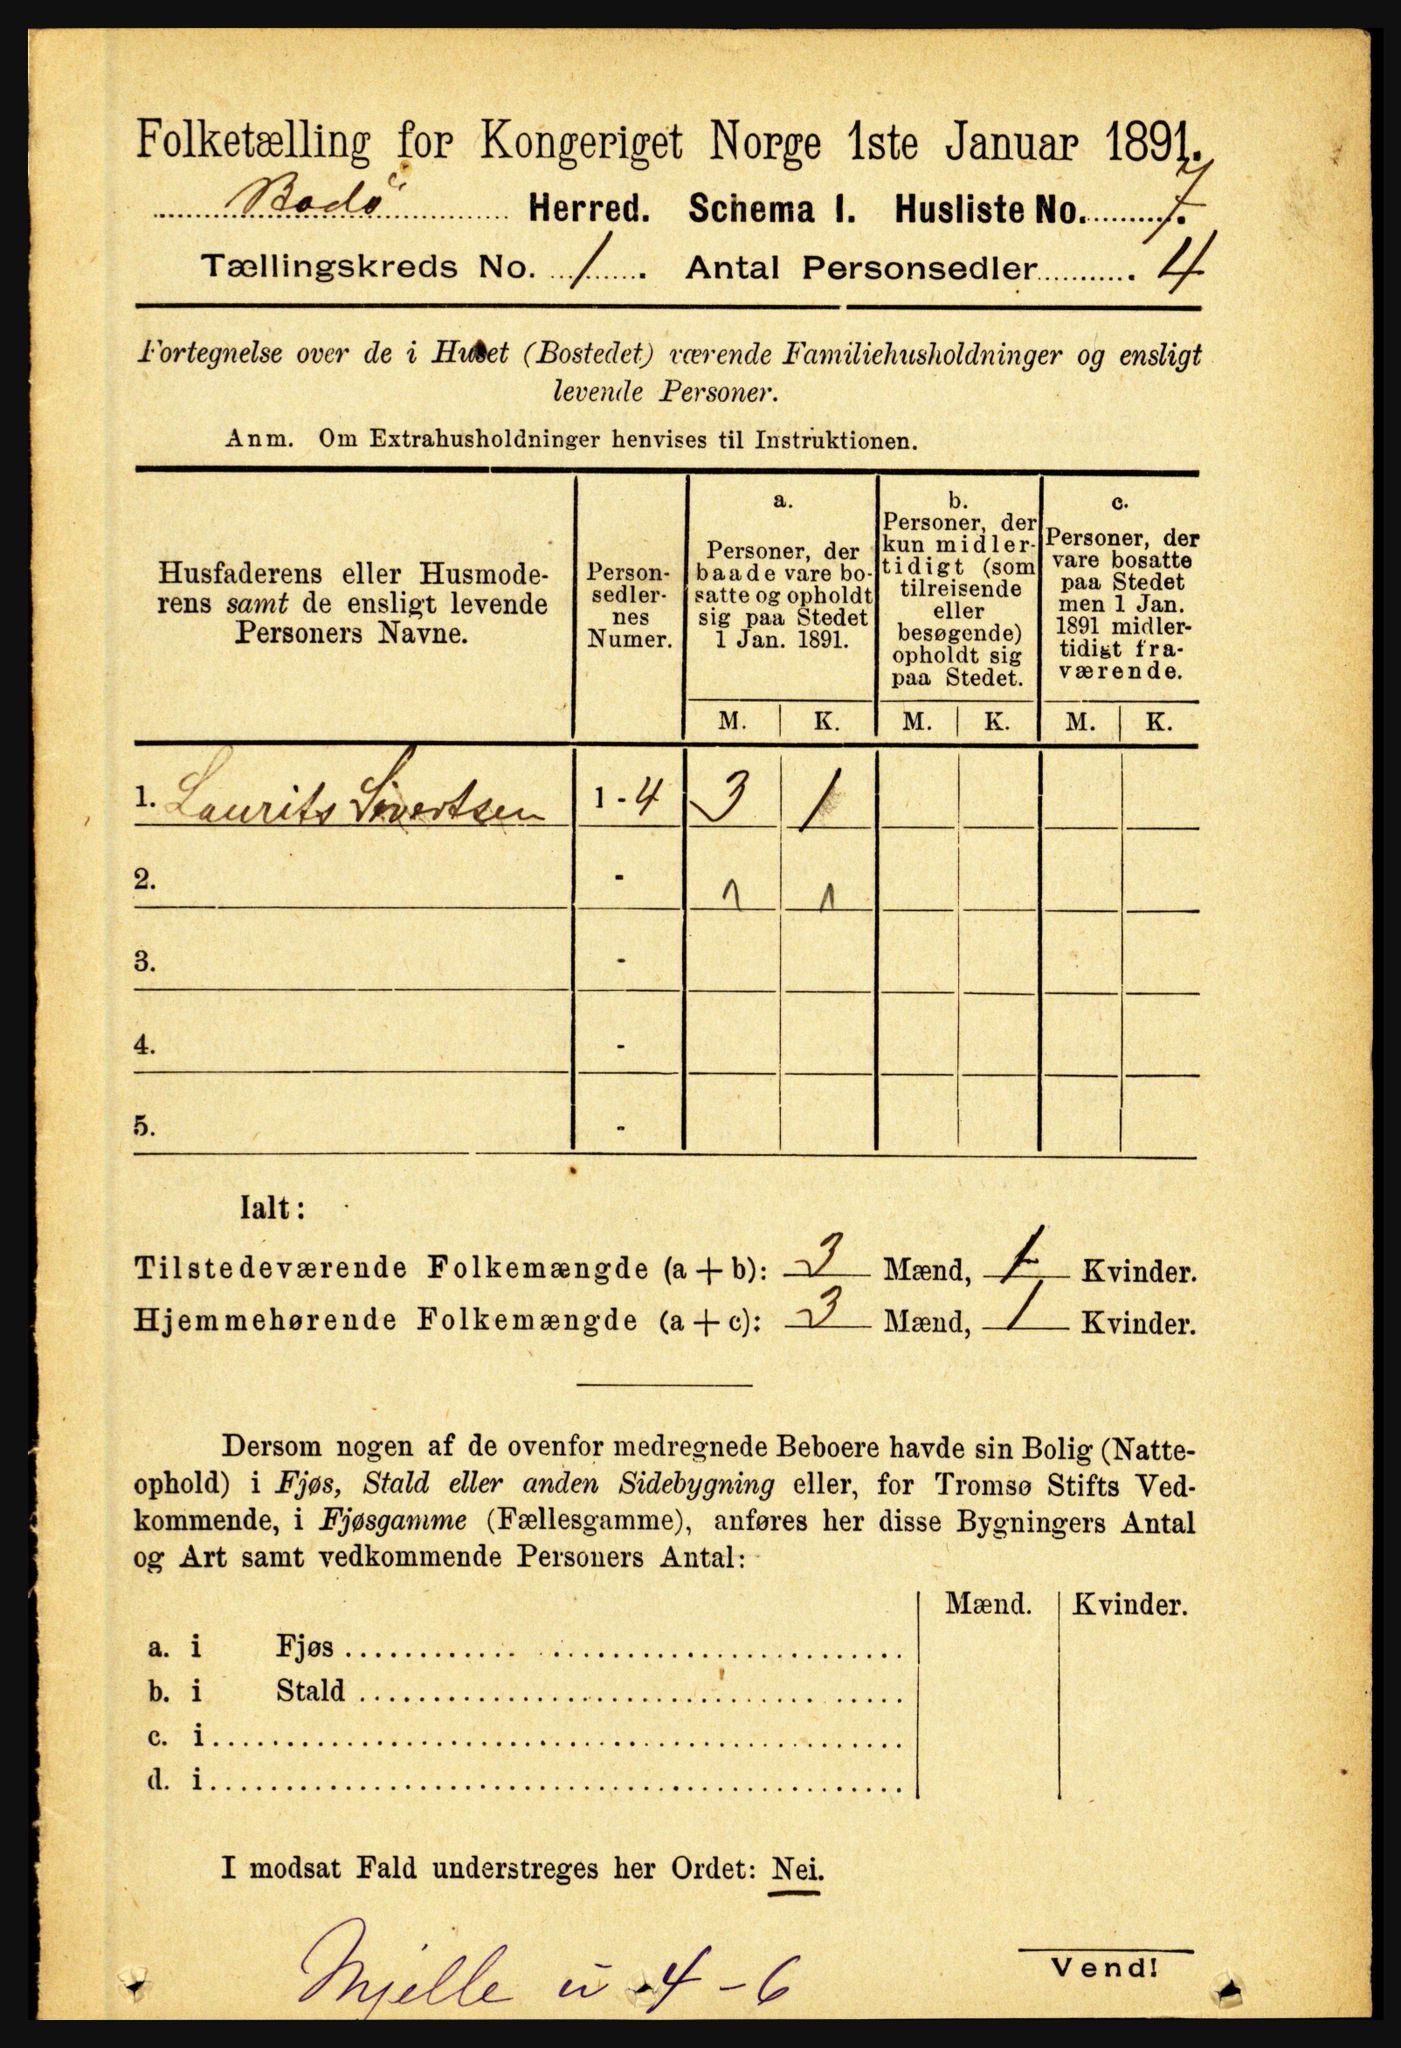 Folketælling for Kongeriget Norge 1ste Januar 1891.
Bodö Herred. Schema I. Husliste No. 7.
Tællingskreds No. 1. Antal Personsedler 4
Fortegnelse over de i Huset (Bostedet) værende Familiehusholdninger og ensligt
levende Personer.
Anm. Om Extrahusholdninger henvises til Instruktionen.
Husfaderens eller Husmode-
rens samt de ensligt levende
Personers Navne.
Person-
sedler-
nes
Numer.
a.
Personer, der
baade vare bo-
satte og opholdt
sig paa Stedet
1 Jan. 1891.
b.
Personer, der
kun midler-
tidigt (som
tilreisende
eller
besøgende)
opholdt sig
paa Stedet.
c.
Personer, der
vare bosatte
paa Stedet
men 1 Jan.
1891 midler-
tidigt fra-
værende.
M. K. M. K. M. K.
1. Laurits Sivertsen 1 - 4 3 1
2. - 1 1
3. -
4. -
5. -
Ialt:
Tilstedeværende Folkemængde (a + b): 3 Mænd, 1 Kvinder.
Hjemmehørende Folkemængde (a + c): 3 Mænd, 1 Kvinder.
Dersom nogen af de ovenfor medregnede Beboere havde sin Bolig (Natte-
ophold) i Fjøs, Stald eller anden Sidebygning eller, for Tromsø Stifts Ved-
kommende, i Fjøsgamme (Fællesgamme), anføres her disse Bygningers Antal
og Art samt vedkommende Personers Antal:
Mænd. Kvinder.
a. i Fjøs
b. i Stald
c. i
d. i
I modsat Fald understreges her Ordet: Nei.
Vend!
Mjelle u 4 - 6